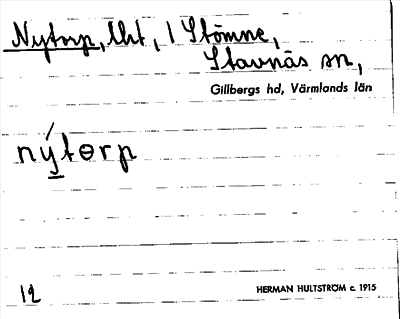 Nytorp, lht, 1 Stömne,
Stavnäs sn,
Gillbergs hd, Värmlands län
nýtɵrp
12
HERMAN HULTSTRÖM c. 1915